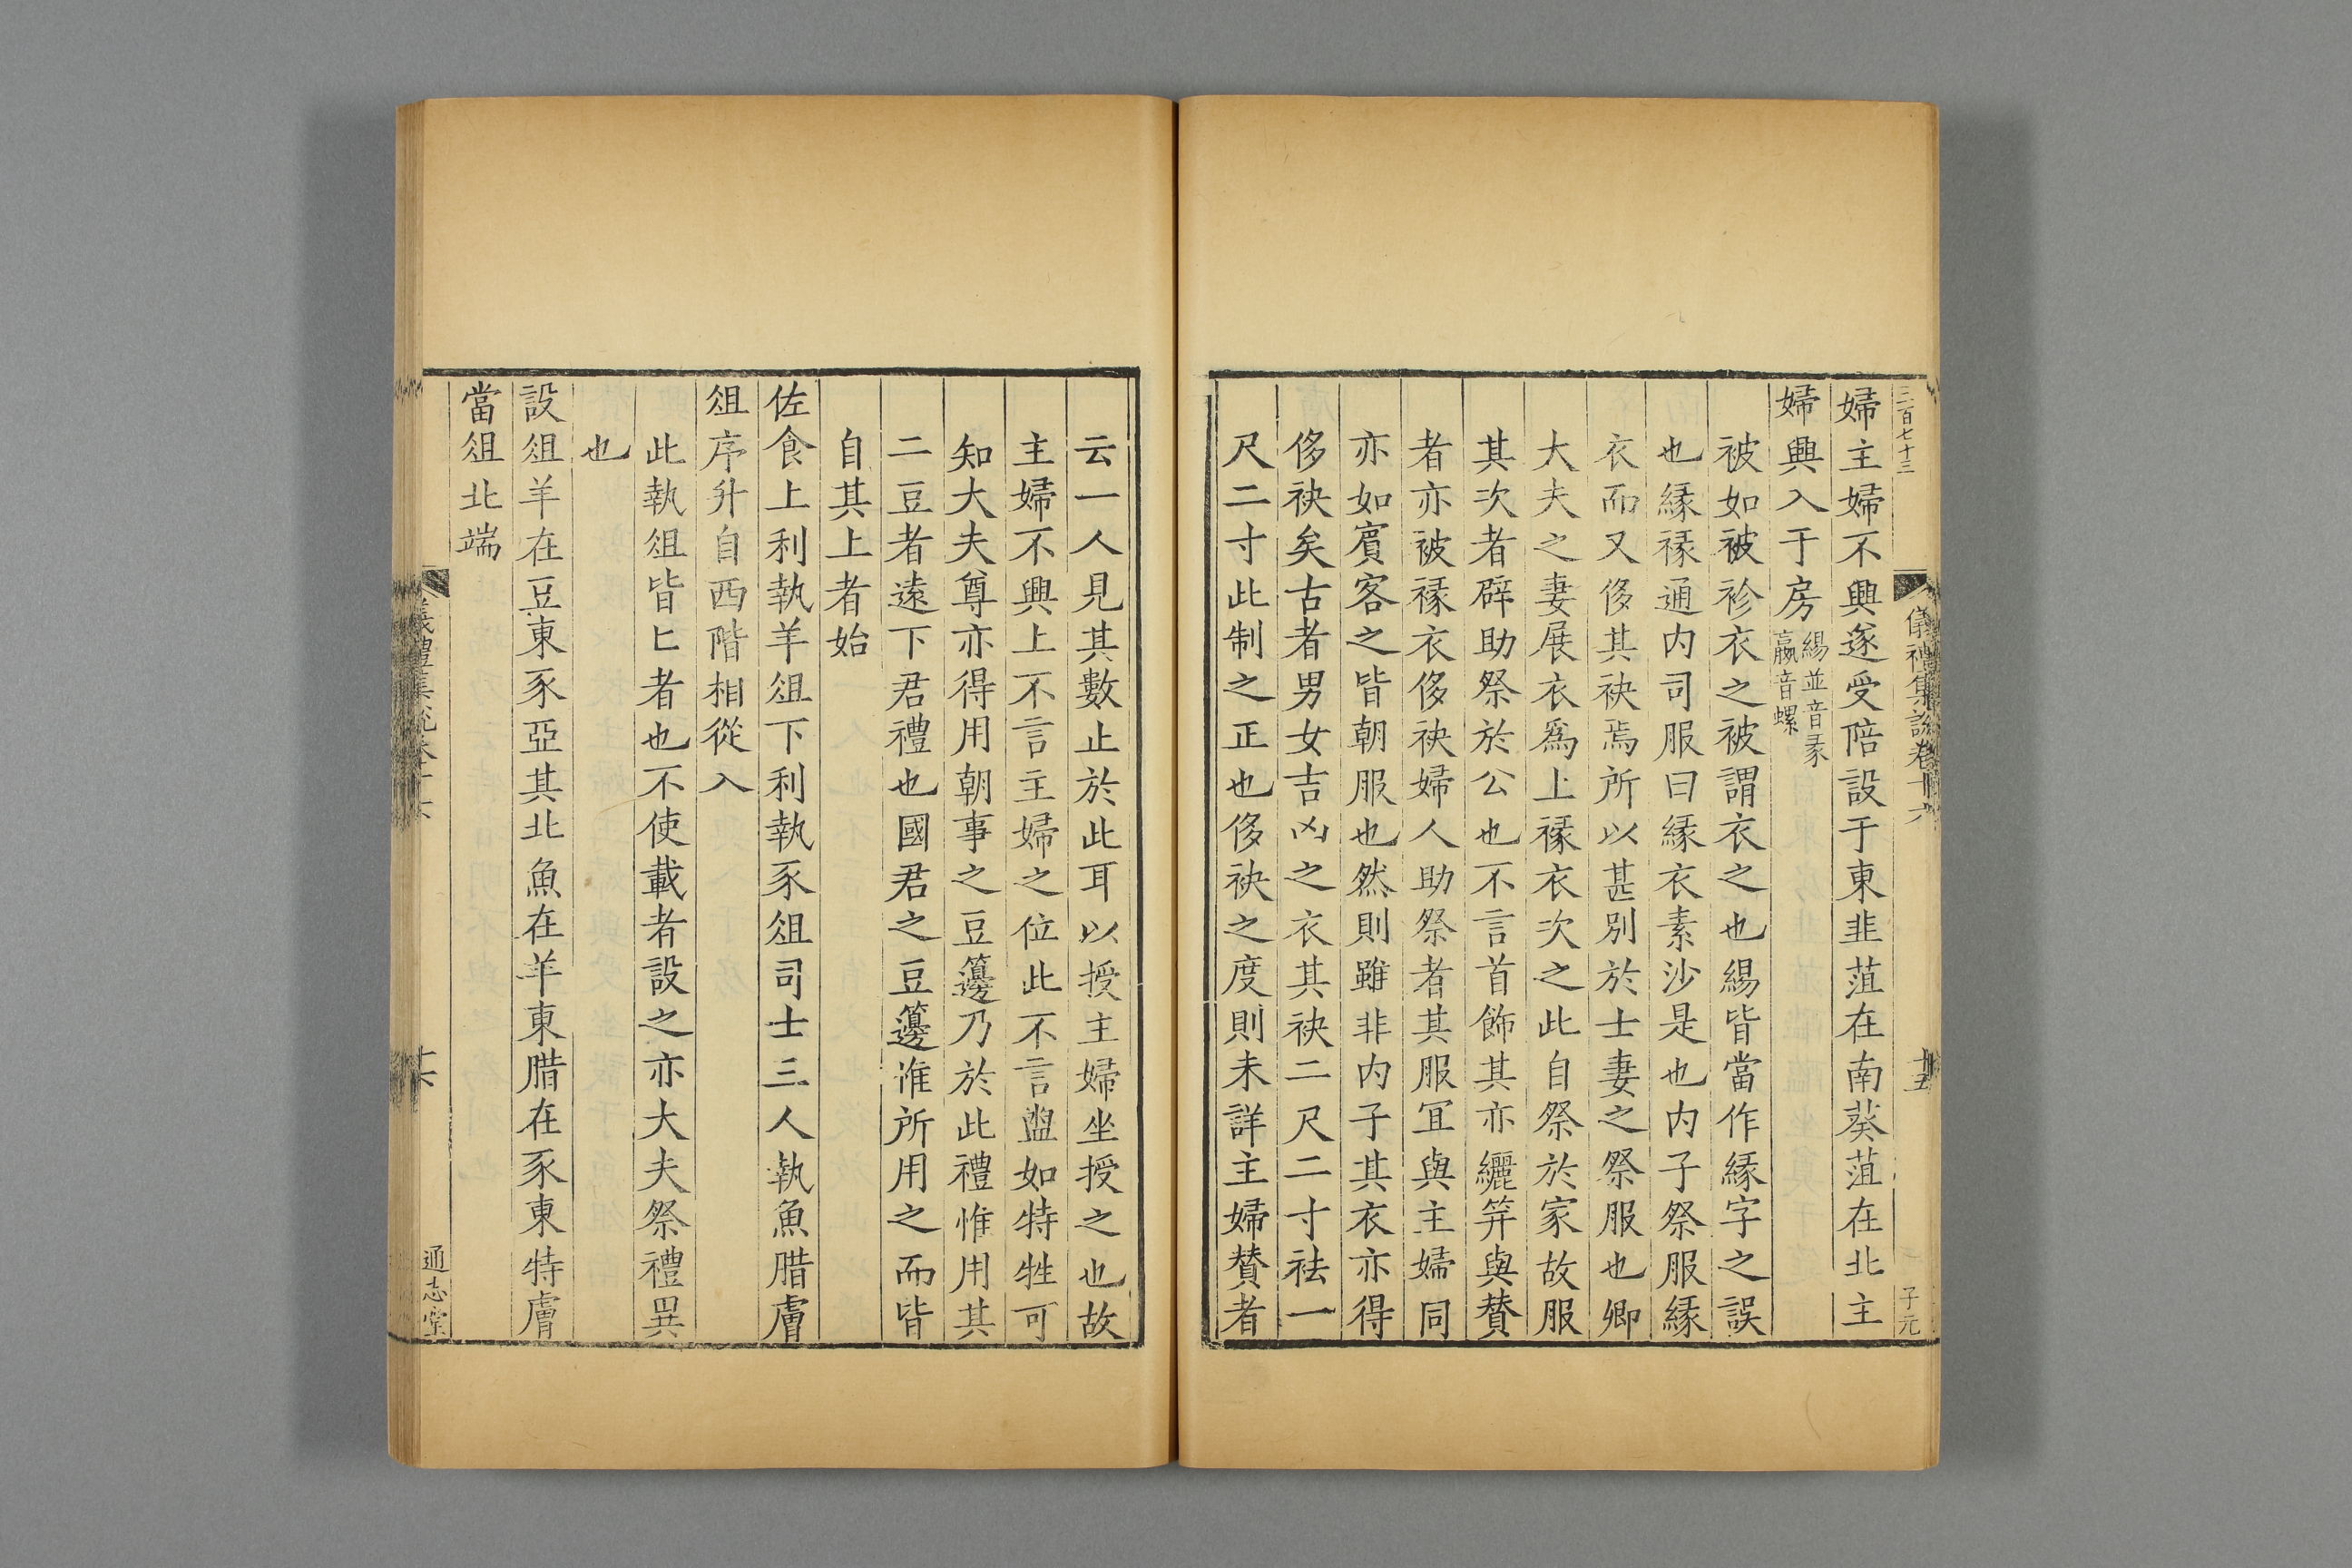 三百七十三
儀禮集說卷十六
十五
子元
婦主婦不興遂受陪設于東韭菹在南葵菹在北主
婦興入于房緆並音彖
蠃音螺
被如被袗衣之被謂衣之也緆皆當作緣字之誤
也緣褖通內司服曰緣衣素沙是也內子祭服緣
衣而又侈其袂焉所以甚別於士妻之祭服也卿
大夫之妻展衣爲上褖衣次之此自祭於家故服
其次者辟助祭於公也不言首飾其亦纚笄與贊
者亦被褖衣侈袂婦人助祭者其服冝與主婦同
亦如賔客之皆朝服也然則雖非內子其衣亦得
侈袂矣古者男女吉凶之衣其袂二尺二寸袪一
尺二寸此制之正也侈袂之度則未詳主婦贊者
云一人見其數止於此耳以授主婦坐授之也故
主婦不興上不言主婦之位此不言盥如特牲可
知大夫尊亦得用朝事之豆籩乃於此禮惟用其
二豆者遠下君禮也國君之豆籩惟所用之而皆
自其上者始
佐食上利執羊俎下利執豕俎司士三人執魚腊膚
俎序升自西階相從入
此執俎皆匕者也不使載者設之亦大夫祭禮異
也
設俎羊在豆東豕亞其北魚在羊東腊在豕東特膚
當俎北端
儀禮集說卷十六
十六
通志堂